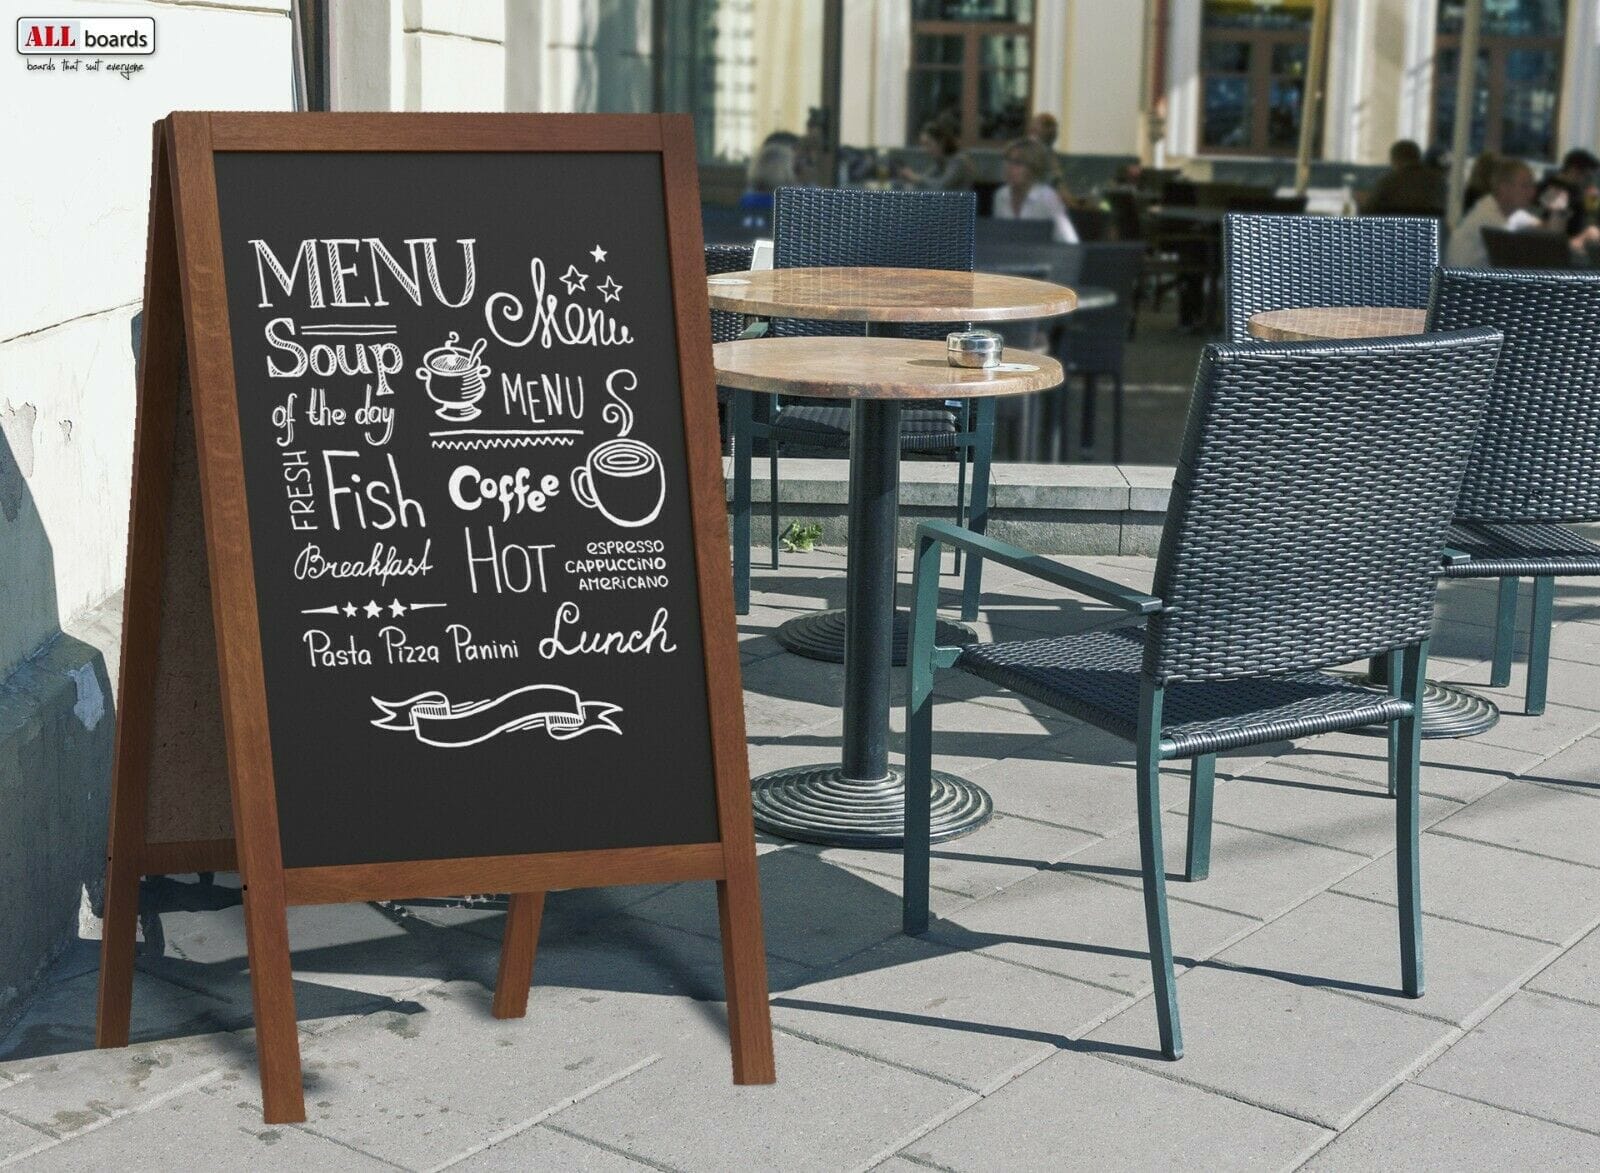 ALL boards
boards that suit everyone
MENU
Menu
Soup
of the day
MENU
FRESH
Fish
Coffee
Breakfast
HOT
ESPRESSO
CAPPUCCINO
AMERICANO
Pasta Pizza Panini
Lunch